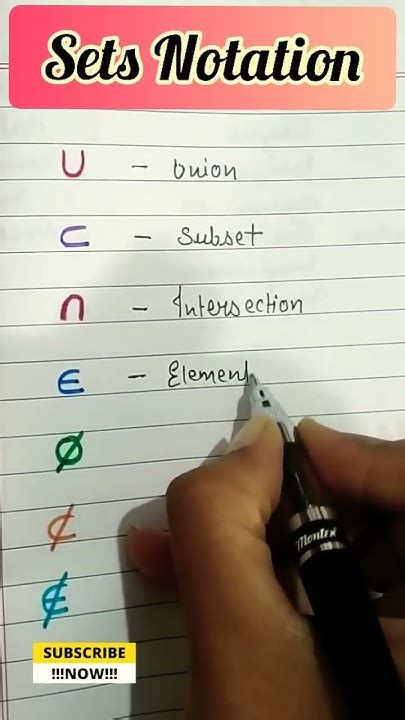 Sets Notation
∪ - Union
⊂ - Subset
∩ - Intersection
∈ - Element
∅
⊄
∉
Montex
SUBSCRIBE
!!!NOW!!!